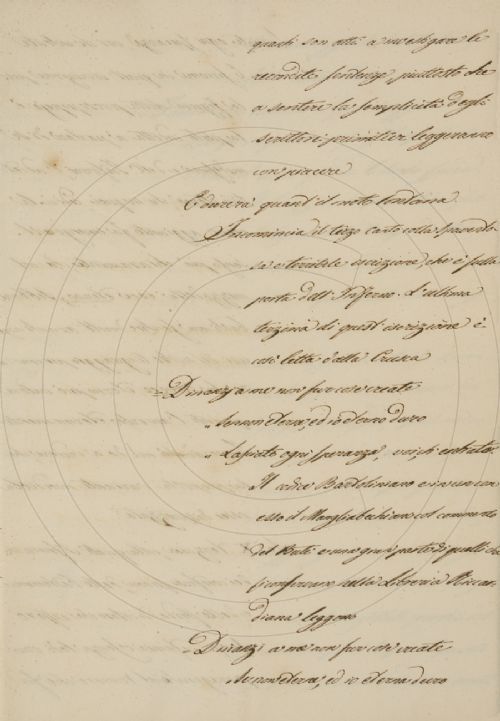 questi son atti a investigare le
recondite sentenze, piuttosto che
a sentire la semplicità degli
scrittori primitivi leggeranno
con piacere
E durerà quant'il moto lontana
Incomincia il terzo canto colla spavento-
sa e terribile iscrizione, che è sulla
porta dell'Inferno. L'ultima
terzina di quest'iscrizione è
così letta dalla Crusca
Dinanzi a me non fur cose create
Se non eterne, ed io eterno duro
Lasciate ogni speranza, voi, ch'entrate.
Il codice Bartoliniano e con
esso il Magliabechiano col commento
del Buti e una gran parte di quelli che
si conservano nella Libreria Riccar-
diana leggono
Dinanzi a me non fur cose create
Se non eterne, ed io eterna duro